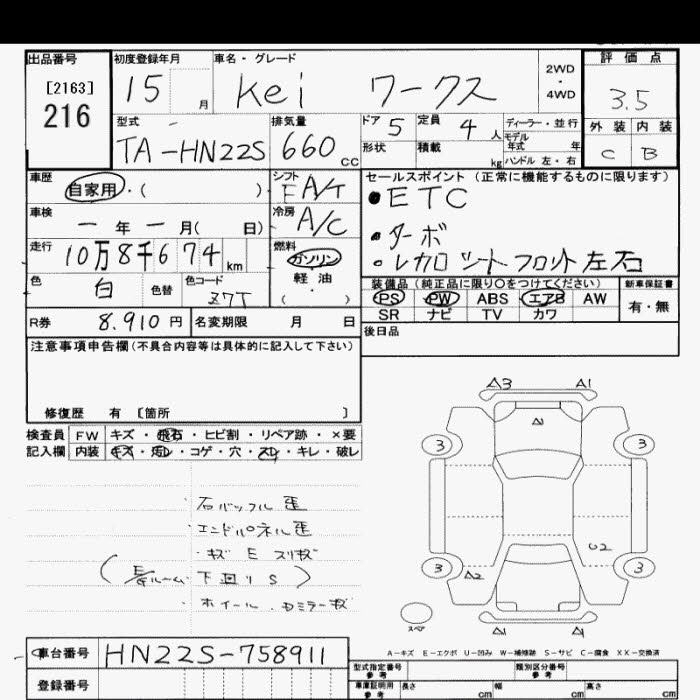 出品番号 初度登録年月 車名・グレード 2WD・4WD 評価点
[2163] 216 15 月 Kei ワークス 3.5
型式 排気量 ドア 定員 ディーラー・並行 外装 内装
TA-HN22S 660 CC 5 4人 モデル年式 年 C B
形状 積載 kg ハンドル 左・右
車歴 自家用・( ) シフト FA/T セールスポイント(正常に機能するものに限ります)
車検 ー年ー月( 日) 冷房 A/C ●ETC
・ターボ
走行 10万8千674km 燃料 ガソリン ・レカロシートフロント左右
軽油
色 白 色替 色コード Z7T ( ・ ) 装備品(純正品に限り○をつけてください) 新車保証書
PS PW ABS エアB AW 有・無
SR ナビ TV カワ
R券 8.910円 名変期限 月 日 後日品
注意事項申告欄(不具合内容等は具体的に記入して下さい)
修復歴 有 〔箇所 〕
検査員 FW キズ・飛石・ヒビ割・リペア跡・×要
記入欄 内装 キズ・汚レ・コゲ・穴・スレ・キレ・破レ
A3 A1
A1
3 3
・エンドパネル歪
・キズ E スリキズ
ルーム 下回り S
・ホイール . ミラーキズ
U2
3 A2 3
スペア A1 A1
A-キズ E-エクボ U-凹み W-補修跡 S-サビ C-腐食 XX-交換済
車台番号 HN22S-758911
登録番号 型式指定番号 参考 類別区分番号 参考
車庫証明用 参考 長さ cm 幅 cm 高さ cm